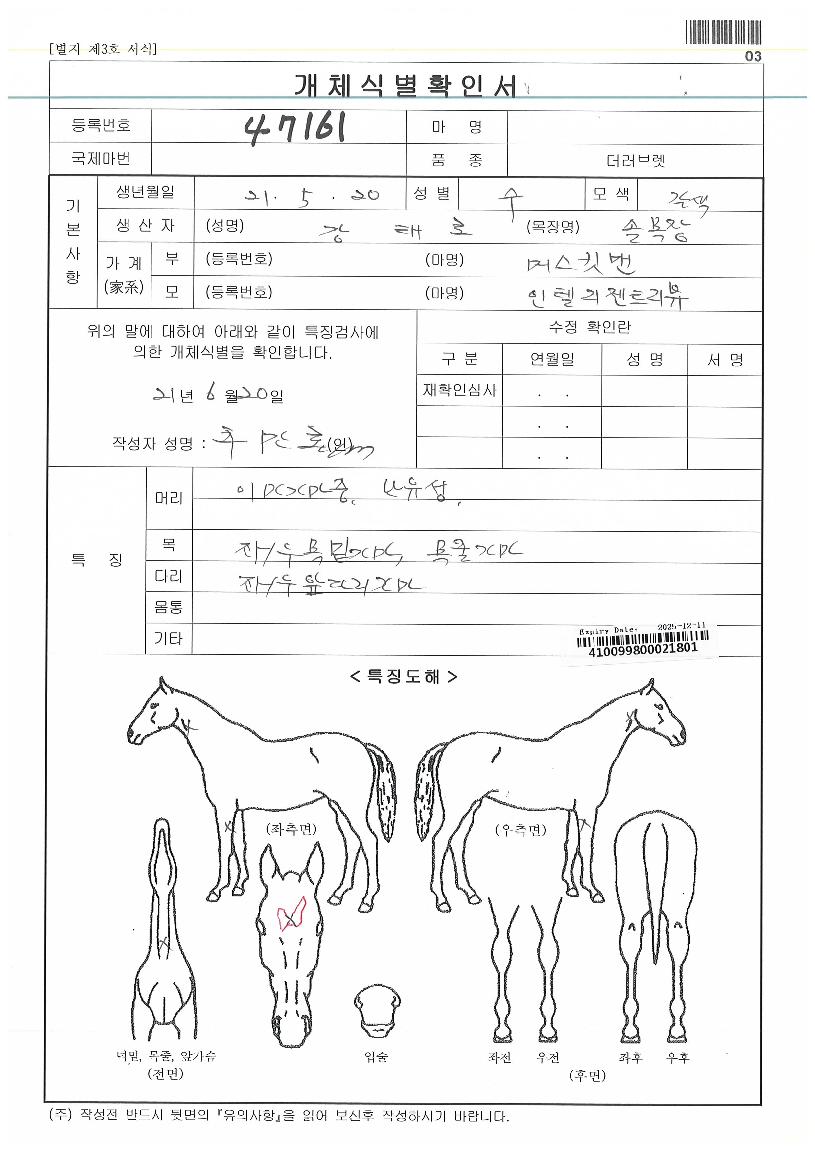 [별지 제3호 서식]
03
개체식별확인서
등록번호 47161 마 명
국제마번 품 종 더러브렛
기본사항
생년월일 21. 5. 20 성별 수 모색 갈색
생산자 (성명) 강태호 (목장명) 솔목장
가계(家系) 부 (등록번호) (마명) 머스킷맨
모 (등록번호) (마명) 인텔리젠트리뷰
위의 말에 대하여 아래와 같이 특징검사에
의한 개체식별을 확인합니다.
21년 6월 20일
작성자 성명 : (인)
수정 확인란
구 분 연월일 성 명 서 명
재확인심사 . .
. .
. .
특 징
머리
목
다리
몸통
기타
Expiry Date. 2025-12-11
410099800021801
< 특징도해 >
(좌측면) (우측면)
너밑, 목줄, 앞가슴
(전면)
입술
좌전 우전 좌후 우후
(후면)
(주) 작성전 반드시 뒷면의 『유의사항』을 읽어 보신후 작성하시기 바랍니다.